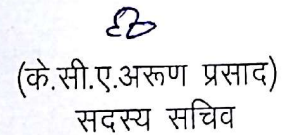 (के.सी.ए.अरूण प्रसाद)
सदस्य सचिव